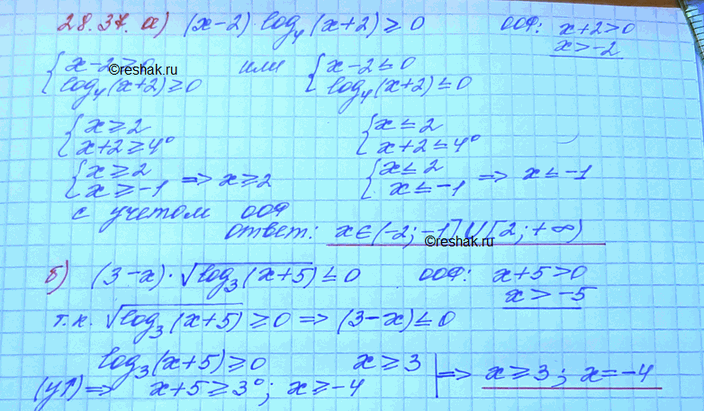 28.37. а) (x-2)·log₄(x+2) ≥ 0 ООФ: x+2>0
x>-2
{ x-2≥0 или { x-2≤0
©reshak.ru
log₄(x+2)≥0 log₄(x+2)≤0
{ x≥2 { x≤2
x+2≥4⁰ x+2≤4⁰
{ x≥2 { x≤2
x≥-1 => x≥2 x≤-1 => x≤-1
с учетом ООФ
ответ: x∈(-2;-1]U[2;+∞)
©reshak.ru
б) (3-x)·√log₃(x+5) ≤0 ООФ: x+5>0
x>-5
т.к. √log₃(x+5) ≥0 => (3-x)≤0
log₃(x+5)≥0 x≥3
(у↑)=> x+5≥3⁰; x≥-4 => x≥3; x=-4